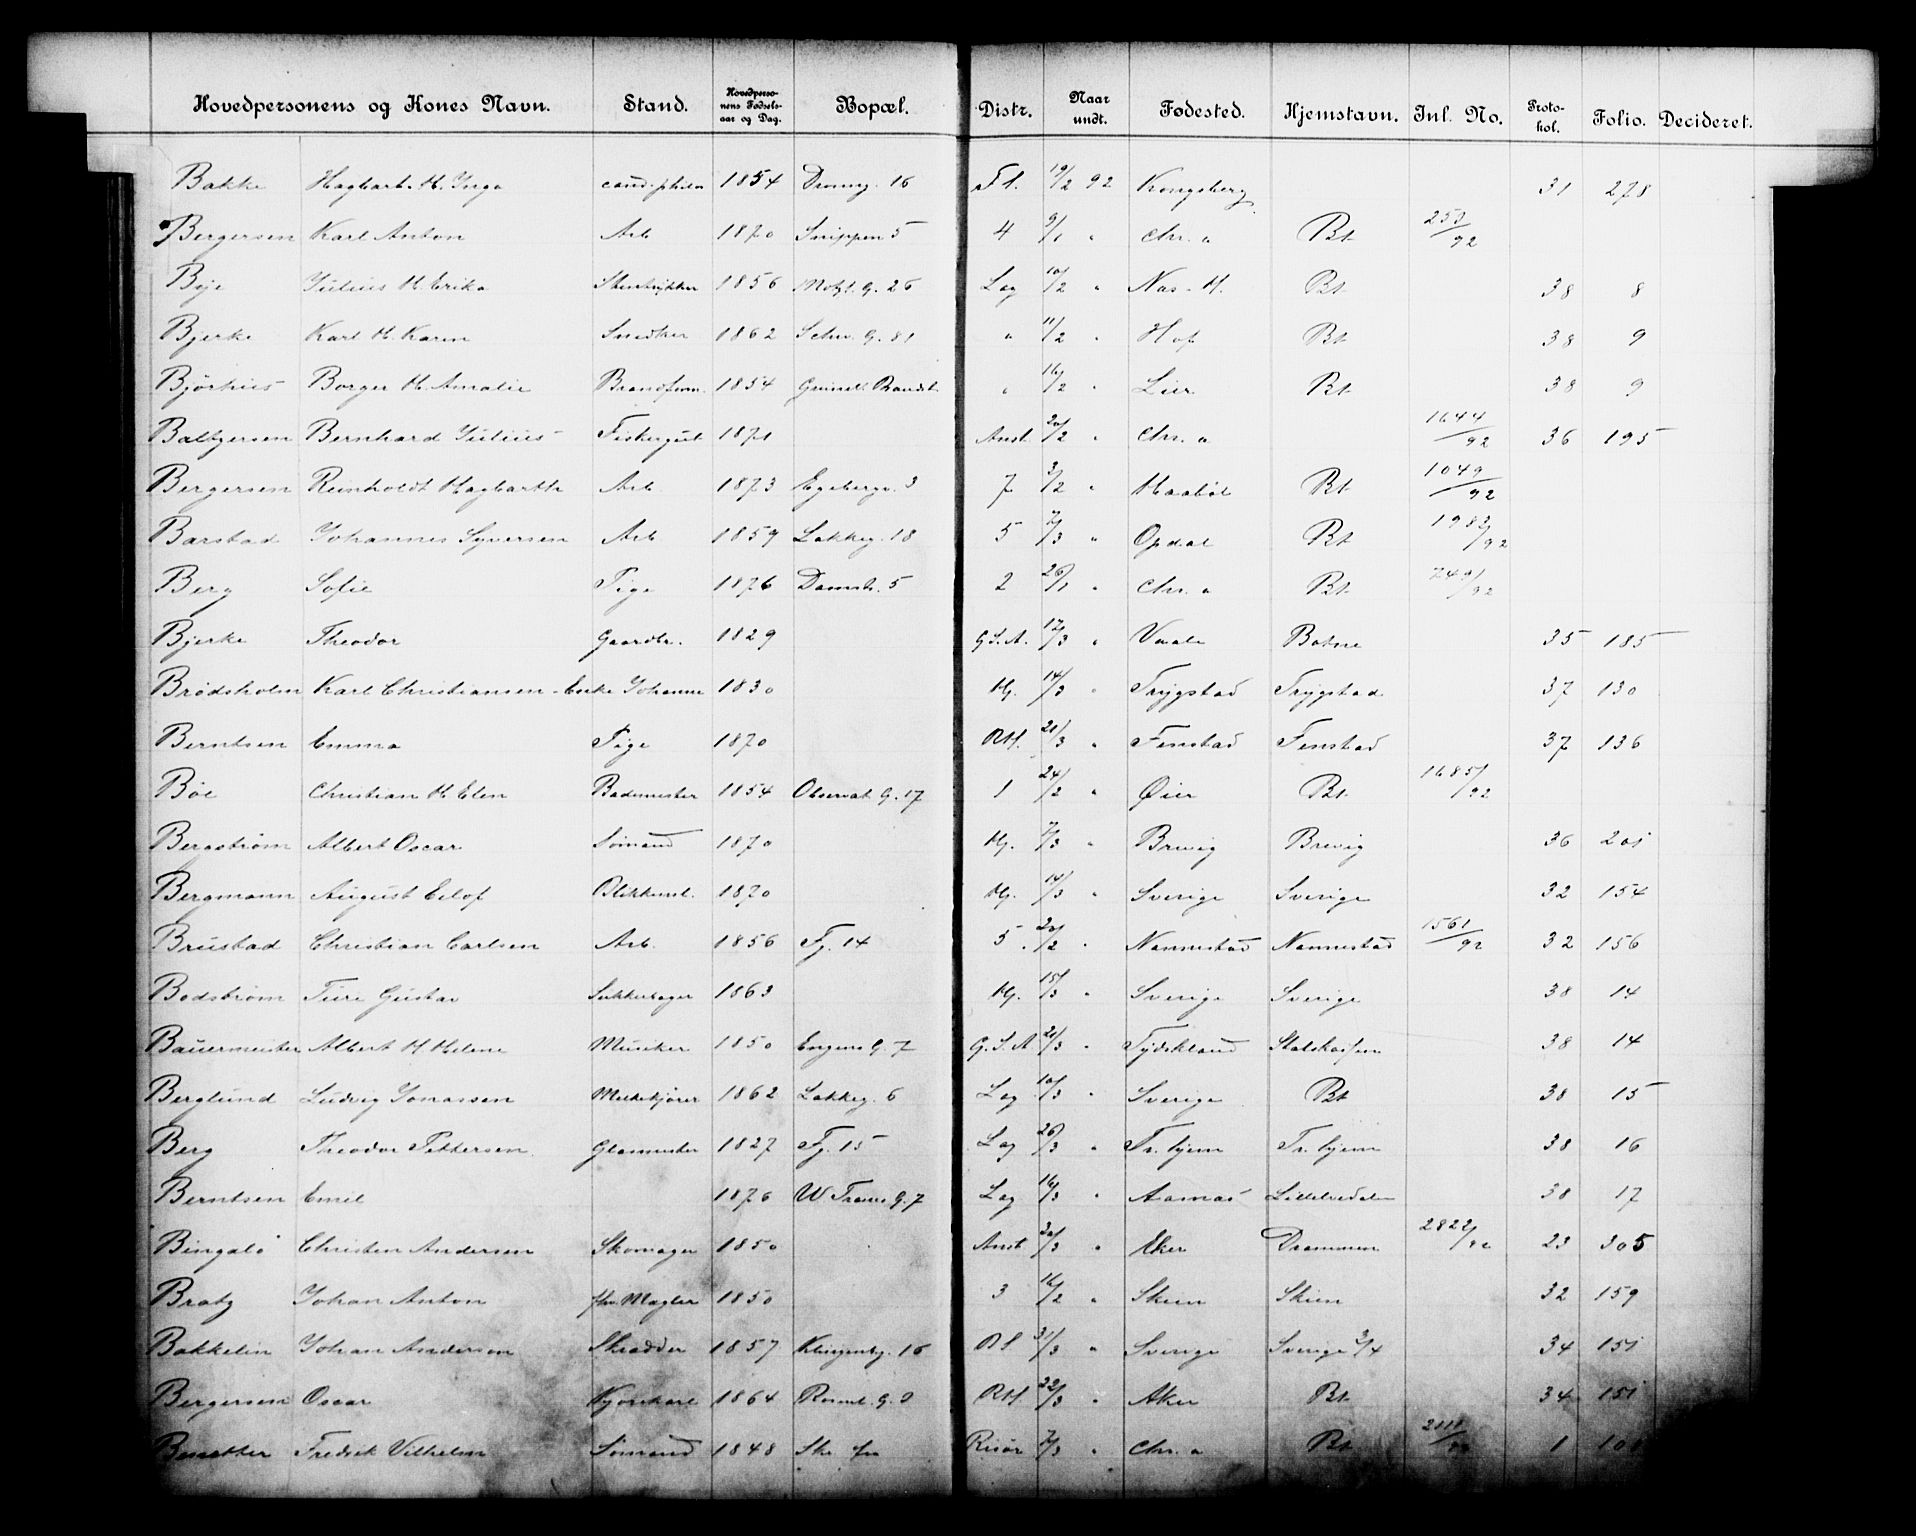 Hovedpersonens og Kones Navn. Stand. Hovedpersonens Fødselsaar og Dag. Bopæl. Distr. Naar undt. Fødested. Hjemstavn. Inl. No. Protokol. Folio. Decideret.
Bakke Hagbart H. Inga cand. philos 1854 Dronng. 16 Fl. 19/2 92 Kongsberg 31 278
Bergersen Karl Anton Arb 1870 Snippen 5 4 9/1 " Chr. a Bt 253/92
Beje Julius H. Erika Stentrykker 1856 26 Lag 10/2 " Nas. H. Bt 38 8
Bjerke Karl H. Karen Snedker 1862 Schw. G. 81 " 11/2 " Hof Bt 38 9
Bjørhus Borger H. Amalie 1854 " 16/2 " Lier Bt 38 9
Baltzersen Bernhard Julius Fiskergut 1871 Anst. 20/2 " Chr. a 1644/92 36 195
Bergersen Reinholdt Hagbarth Arb. 1873 Egebergv. 3 7 3/2 " Haabøl Bt 1049/92
Barstad Johannes Syversen Arb 1859 Lakkeg. 18 5 7/3 " Opdal Bt 1982/92
Berg Sofie Pige 1876 Damstr. 5 2 26/1 " Chr. a Bt 749/92
Bjerke Theodor Gaardbr. 1829 G.S.A. 12/3 " Vaale Botne 35 185
Brødsholm Karl Christiansen - Enke Johanne 1830 Hj. 14/3 " Trygstad Trygstad 37 130
Berntsen Emma Pige 1870 RH. 21/3 " Fenstad Fenstad 37 136
Böe Christian H. Elen Bademester 1854 Observat. G. 17 1 24/2 " Øier Bt 1685/92
Bergstrøm Albert Oscar Sømand 1870 Hj. 7/3 " Brevig Brevig 36 201
Bergmann August Eilof Blikkensl. 1870 Hj. 14/3 " Sverige Sverige 32 154
Brustad Christian Carlsen Arb. 1856 Fj. 14 5. 20/2 " Nannestad Nannestad 1561/92 32 156
Bodstrøm Ture Gustav Sukkerbager 1863 Hj. 15/3 " Sverige Sverige 38 14
Bauermeister Albert H. Helene Musiker 1850 Engens G. 7 G.S.A. 21/3 " Tydskland 38 14
Berglund Ludvig Jonassen Melkekjører 1862 Lakkeg. 6 Lag 10/3 " Sverige Bt 38 15
Berg Theodor Pettersen Glasmester 1827 Fj. 15 Lag 26/3 " Tr. hjem Tr. hjem 38 16
Berntsen Emil 1876 W. Thranes G. 7 Lag 16/3 " Aasnæs 38 17
Bingalø Christen Andersen Skomager 1850 Anst 20/3 " Eker Drammen 2822/92 23 305
Bratz Johan Anton fhv. Mægler 1850 3 16/2 " Skien Skien 32 159
Bakkelin Johan Anderson Skrædder 1857 Klingenbg. 16 RS. 31/3 " Sverige Sverige 3/4 34 151
Bergersen Oscar Kjørekarl 1864 RH. 22/3 " Aker Bt 34 151
Fredrik Vilhelm Sømand 1848 Risør 7/3 " Chr. a Bt 1